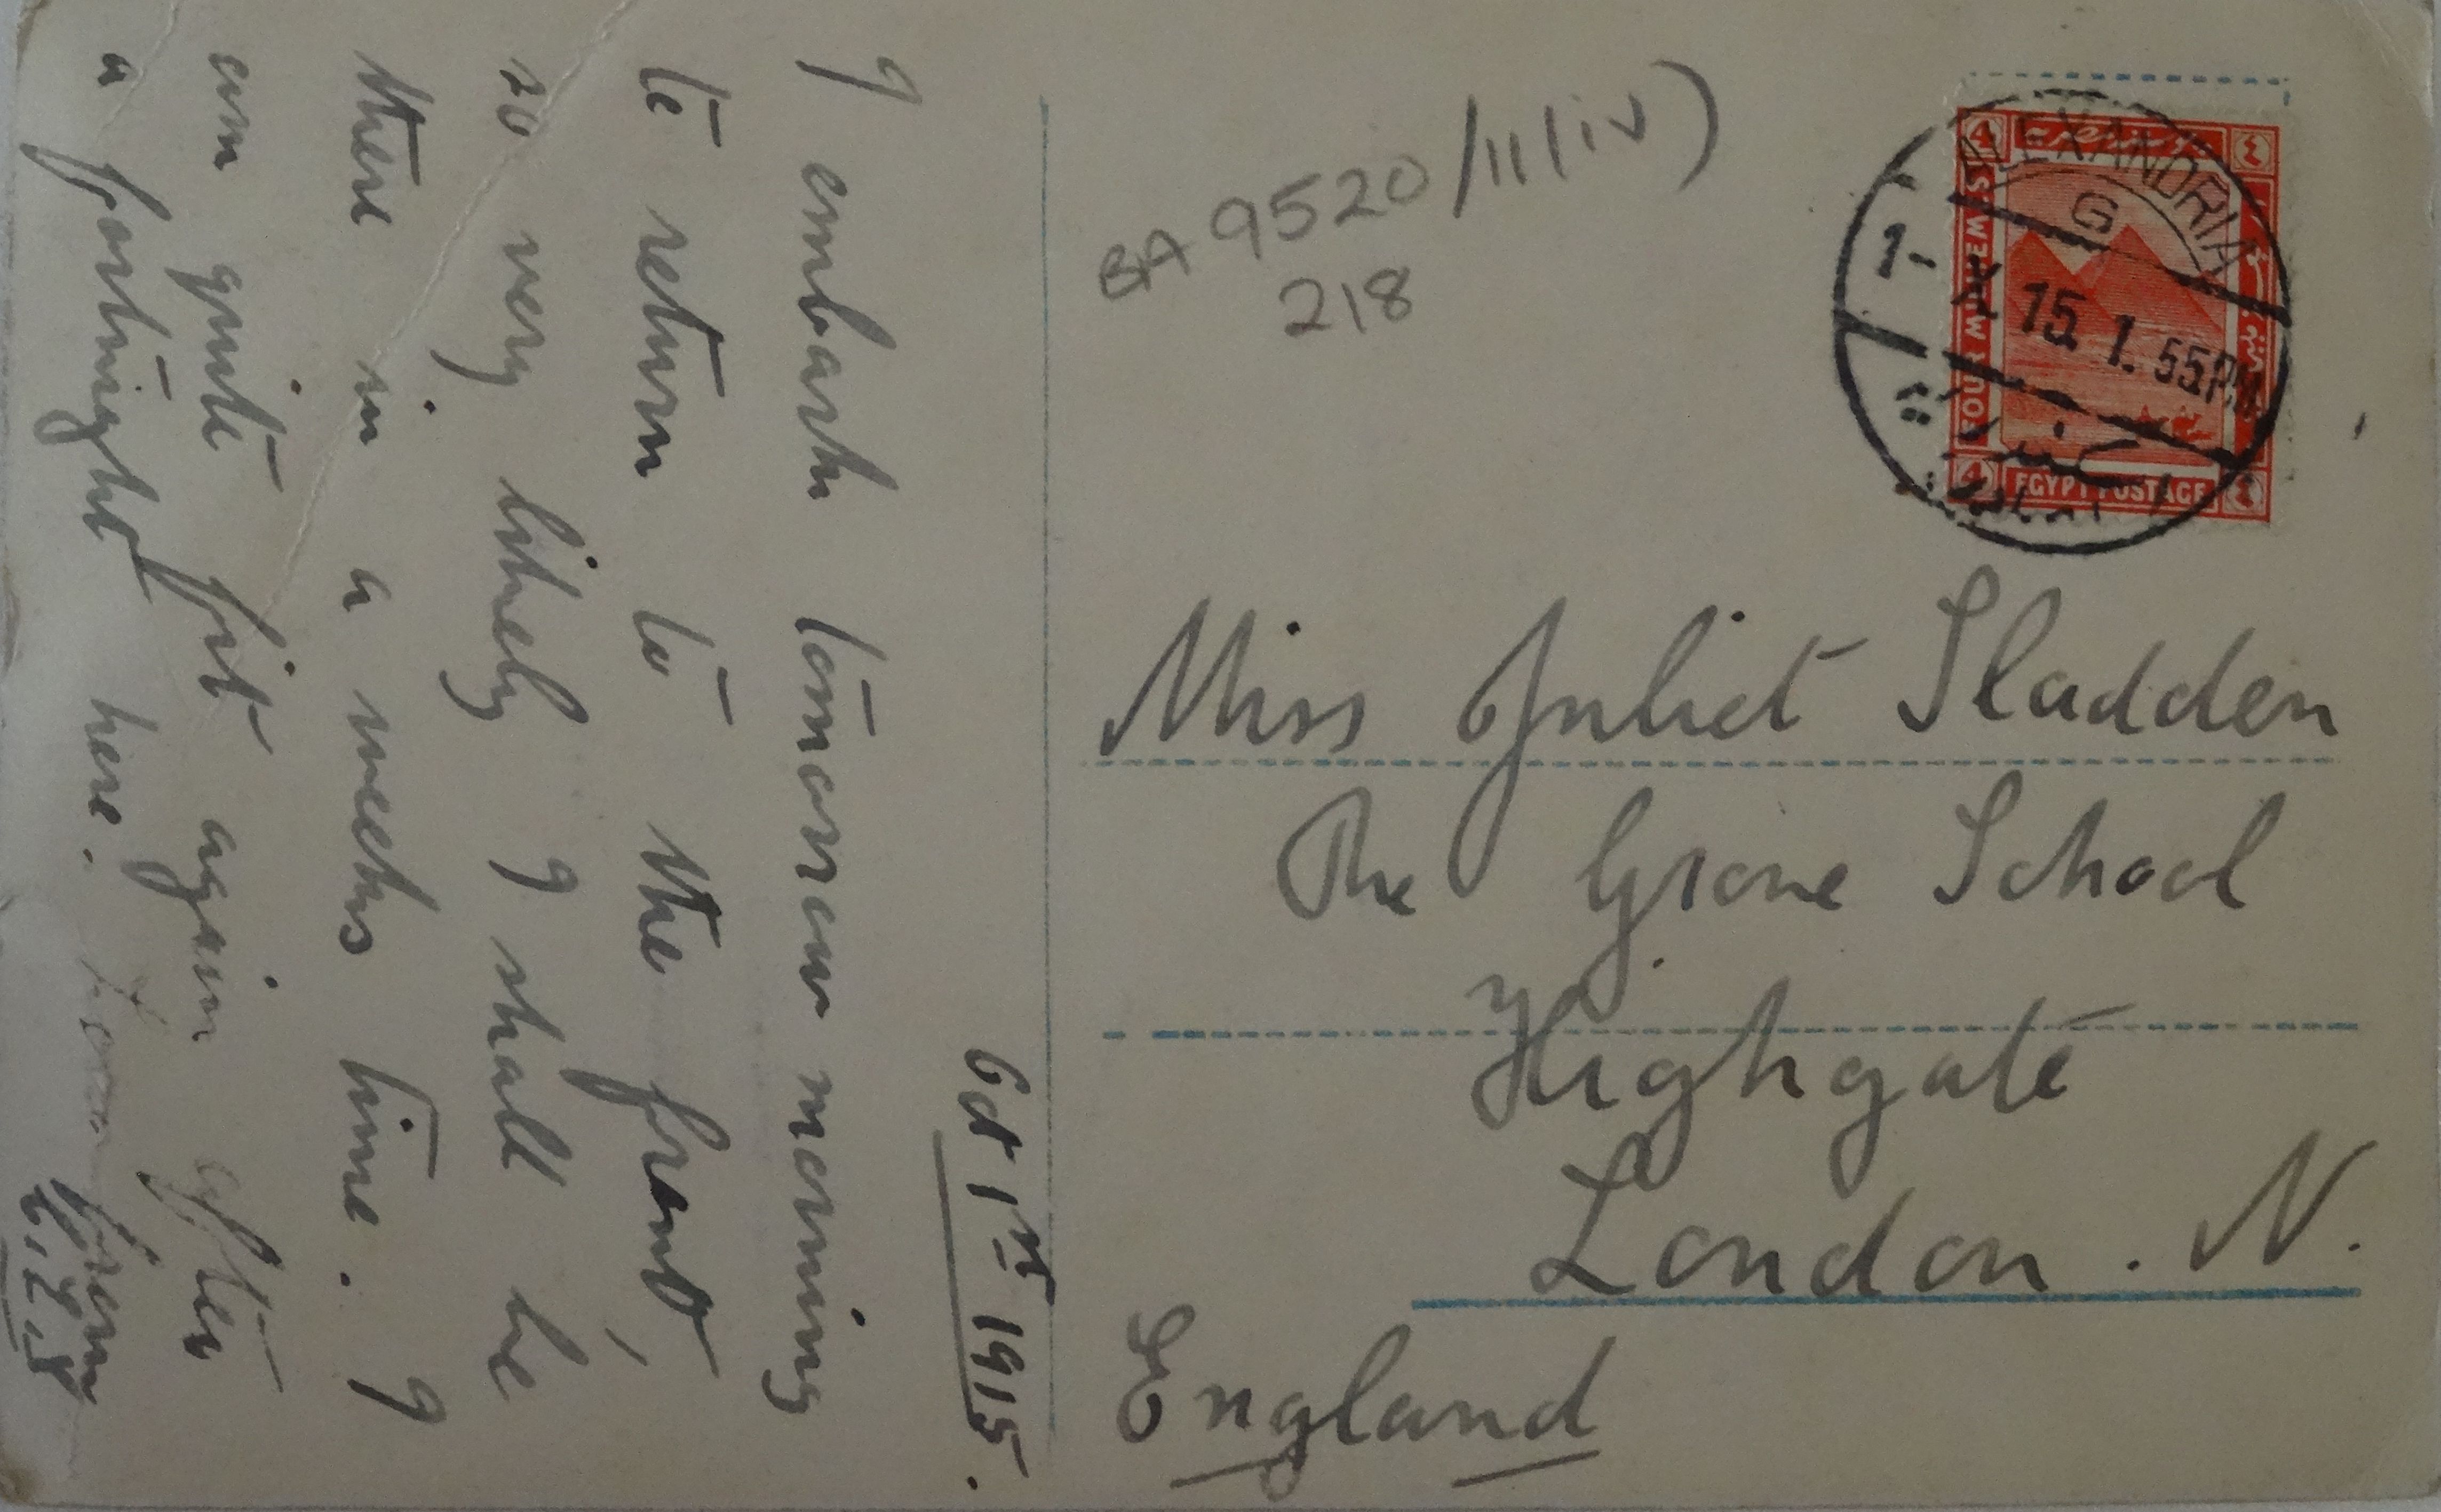 Oct 1st 1915.
I embark tomorrow morning
to return to the front,
so very likely I shall be
there in a weeks time. I
am quite fit again after
a fortnight here. from
BA 9520/11/iv)
218
ALEXANDRIA
G
1- X 15. 1. 55PM
اسكندرية
4
٤
FOUR MILLIEMES
4
EGYPT POSTAGE
٤
Miss Juliet Sladden
The Grove School
Highgate
London. N.
England